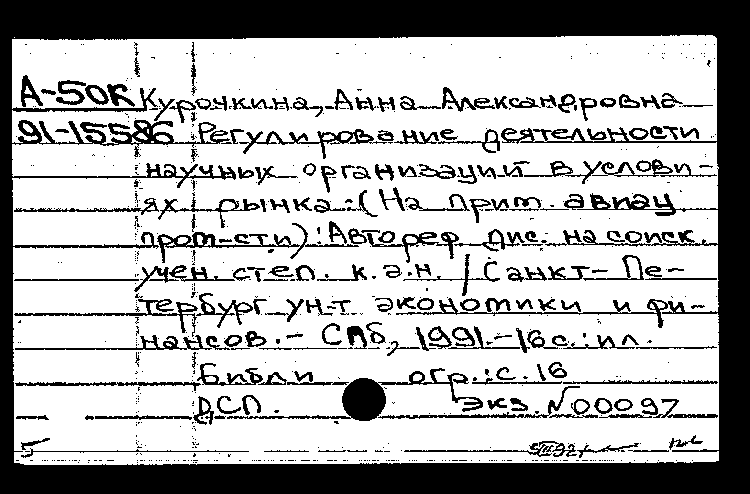 А-50К Курочкина, Анна Александровна
91-15586 Регулирование деятельности
научных организаций в услови-
ях рынка: (На прим. авиац
пром-сти): Автореф. дис. на соиск.
учен. степ. к.э.н. / Санкт-Пе-
тербург ун-т экономики и фи-
нансов. - СПб, 1991. - 16 с.: ил.
Библи огр.: с. 16
ДСП. Экз. №00097
5